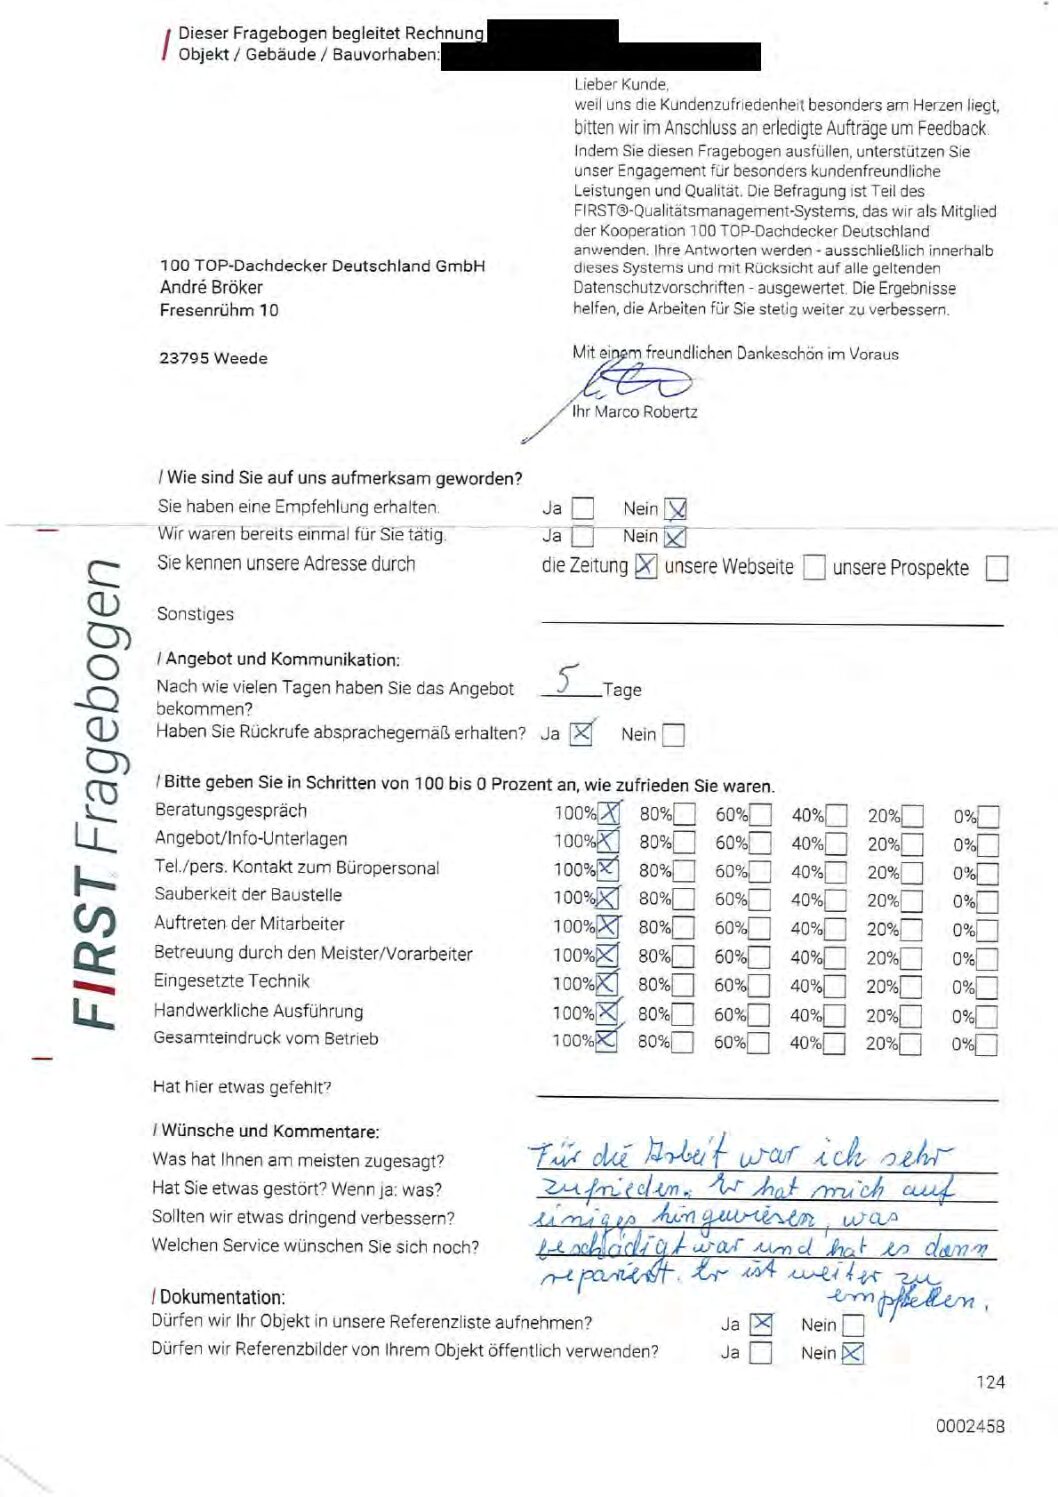 Dieser Fragebogen begleitet Rechnung
Objekt / Gebäude / Bauvorhaben:
Lieber Kunde,
weil uns die Kundenzufriedenheit besonders am Herzen liegt,
bitten wir im Anschluss an erledigte Aufträge um Feedback.
Indem Sie diesen Fragebogen ausfüllen, unterstützen Sie
unser Engagement für besonders kundenfreundliche
Leistungen und Qualität. Die Befragung ist Teil des
FIRST®-Qualitätsmanagement-Systems, das wir als Mitglied
der Kooperation 100 TOP-Dachdecker Deutschland
anwenden. Ihre Antworten werden - ausschließlich innerhalb
dieses Systems und mit Rücksicht auf alle geltenden
Datenschutzvorschriften - ausgewertet. Die Ergebnisse
helfen, die Arbeiten für Sie stetig weiter zu verbessern.
100 TOP-Dachdecker Deutschland GmbH
André Bröker
Fresenrühm 10
23795 Weede
Mit einem freundlichen Dankeschön im Voraus
Ihr Marco Robertz
FIRST Fragebogen
/ Wie sind Sie auf uns aufmerksam geworden?
Sie haben eine Empfehlung erhalten. Ja Nein
Wir waren bereits einmal für Sie tätig. Ja Nein
Sie kennen unsere Adresse durch die Zeitung unsere Webseite unsere Prospekte
Sonstiges
/ Angebot und Kommunikation:
Nach wie vielen Tagen haben Sie das Angebot 5 Tage
bekommen?
Haben Sie Rückrufe absprachegemäß erhalten? Ja Nein
/ Bitte geben Sie in Schritten von 100 bis 0 Prozent an, wie zufrieden Sie waren.
Beratungsgespräch 100% 80% 60% 40% 20% 0%
Angebot/Info-Unterlagen 100% 80% 60% 40% 20% 0%
Tel./pers. Kontakt zum Büropersonal 100% 80% 60% 40% 20% 0%
Sauberkeit der Baustelle 100% 80% 60% 40% 20% 0%
Auftreten der Mitarbeiter 100% 80% 60% 40% 20% 0%
Betreuung durch den Meister/Vorarbeiter 100% 80% 60% 40% 20% 0%
Eingesetzte Technik 100% 80% 60% 40% 20% 0%
Handwerkliche Ausführung 100% 80% 60% 40% 20% 0%
Gesamteindruck vom Betrieb 100% 80% 60% 40% 20% 0%
Hat hier etwas gefehlt?
/ Wünsche und Kommentare:
Was hat Ihnen am meisten zugesagt? Für die Arbeit war ich sehr
Hat Sie etwas gestört? Wenn ja: was? zufrieden. Er hat mich auf
Sollten wir etwas dringend verbessern? einiges hingewiesen, was
Welchen Service wünschen Sie sich noch? beschädigt war und hat es dann
repariert. Er ist weiter zu
empfhelen.
/ Dokumentation:
Dürfen wir Ihr Objekt in unsere Referenzliste aufnehmen? Ja Nein
Dürfen wir Referenzbilder von Ihrem Objekt öffentlich verwenden? Ja Nein
124
0002458